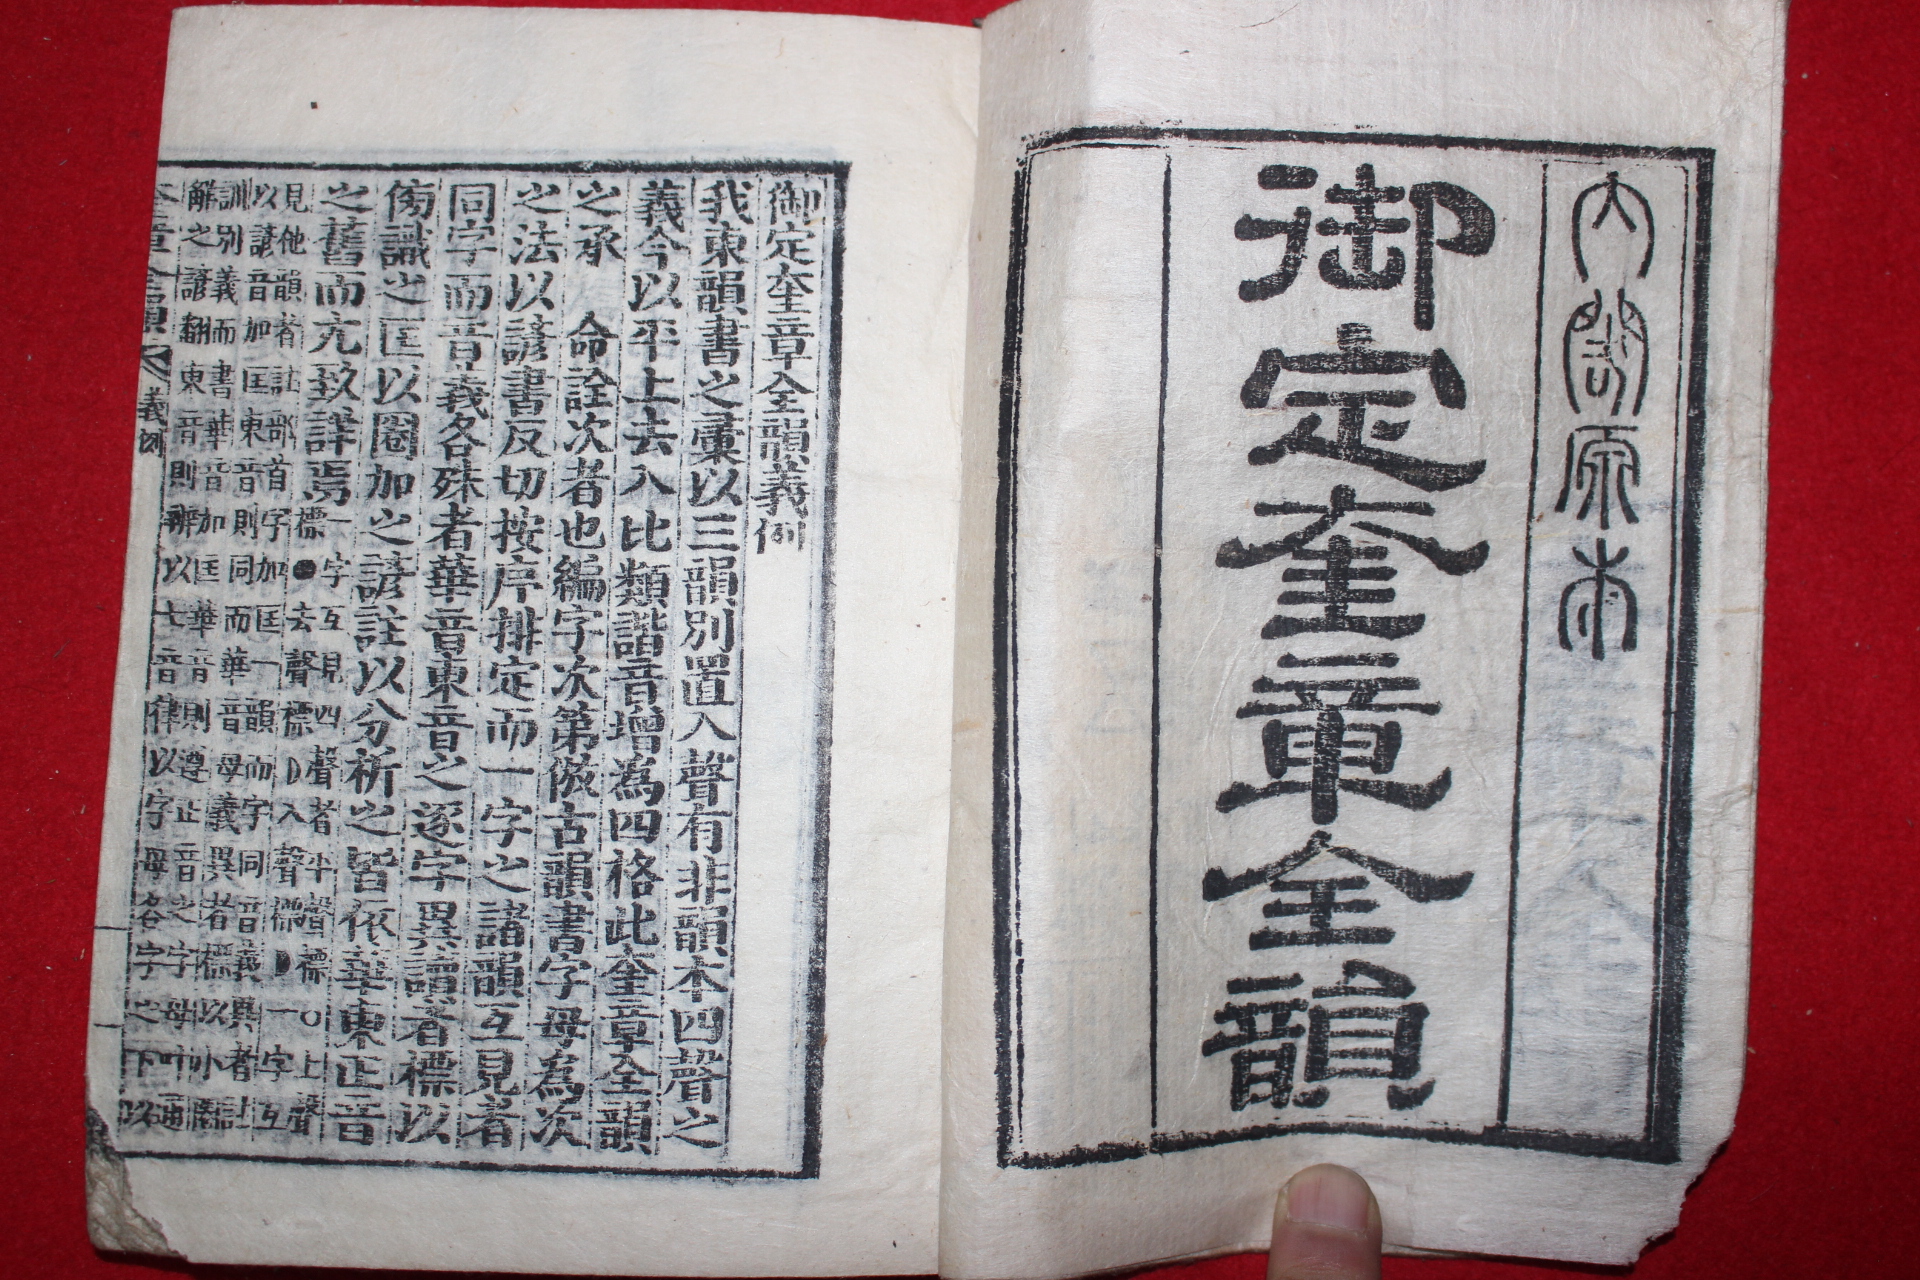 內閣原本
御定奎章全韻
御定奎章全韻義例
我東韻書之彙以三韻別置入聲有非韻本四聲之
義今以平上去入比類諧音增為四格此奎章全韻
之承 命詮次者也編字次第倣古韻書字母為次
之法以諺書反切按序排定而一字之諸韻互見者
同字而音義各殊者華音東音之逐字異讀者標以
傍識之匡以圈加之諺註以分析之皆依華東正音
之舊而尤致詳焉一字互見四聲者平聲標○上聲
標●去聲標D入聲標◗一字互
見他韻者註韻首字加匡一韻而字同音義異者註
以諺音加匡東音則同而華音母義異者標以小圈
訓別義而書華音加匡華音則遵正音之字母叶通
解之諺翻東音則辨以七音律以字母各字之下以
奎章全韻 義例